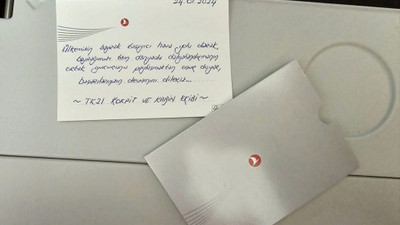 24.01.2024
Ülkemizin bayrak taşıyıcı hava yolu olarak,
tüm dünyada
ortak gururunu paylaşmaktan onur duyar,
başarılarınızın devamını dileriz...
~ TK21 KOKPİT VE KABİN EKİBİ ~